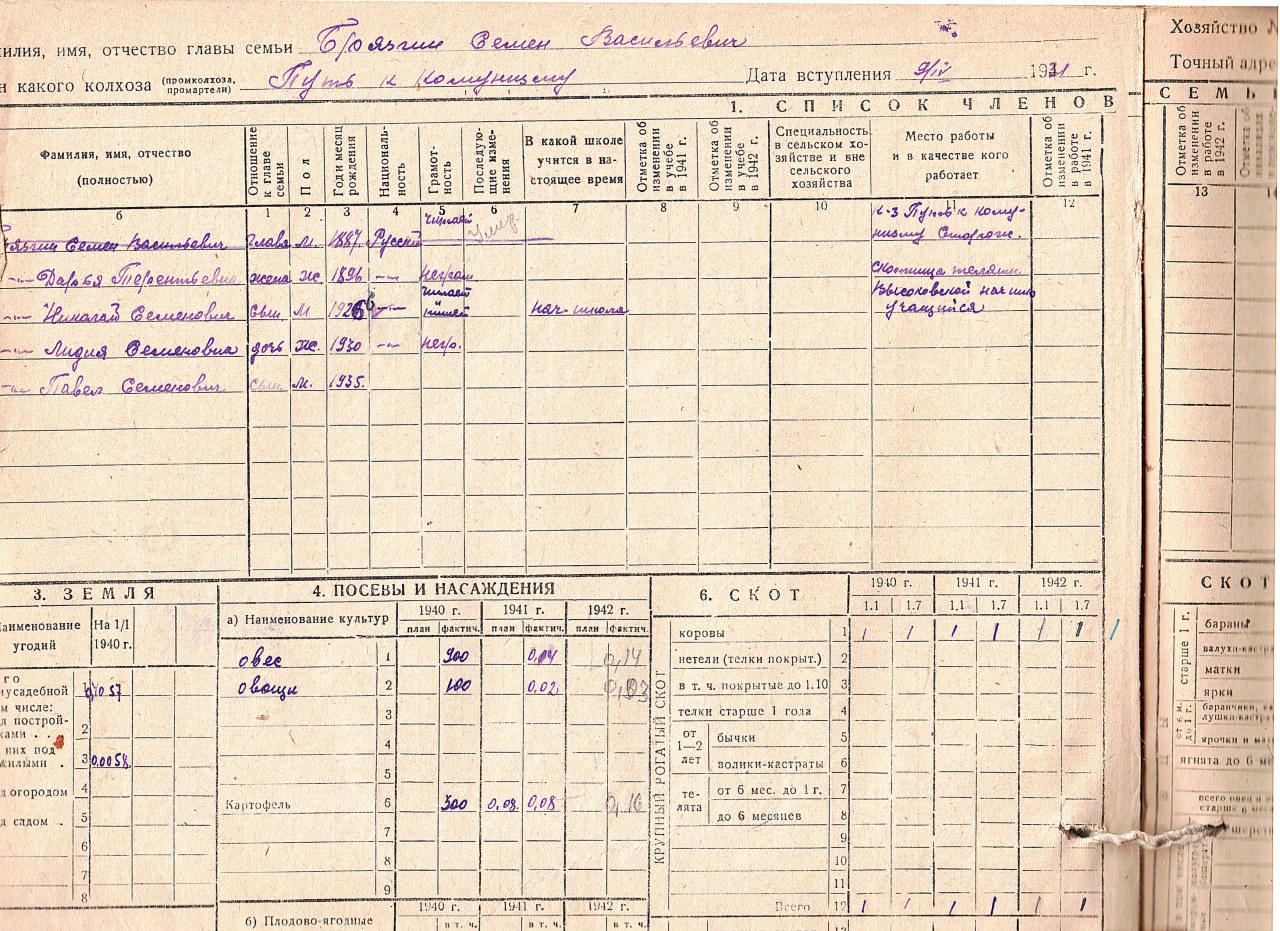 милия, имя, отчество главы семьи Брязгин Семен Васильевич
н какого колхоза (промколхоза, промартели) Путь к Комунизму Дата вступления 9/IV 1931 г.
1. СПИСОК ЧЛЕНОВ
Фамилия, имя, отчество (полностью) Отношение к главе семьи Пол Год и месяц рождения Националь-ность Грамот-ность Последую-щие изме-нения В какой школе учится в на-стоящее время Отметка об изменении в учебе в 1941 г. Отметка об изменении в учебе в 1942 г. Специальность в сельском хо-зяйстве и вне сельского хозяйства Место работы и в качестве кого работает Отметка об изменении в работе в 1941 г.
б 1 2 3 4 5 6 7 8 9 10 11 12
язгин Семен Васильевич глава м. 1887. Русский читает умер. к-з Путь к кому-
низму Сторож.
-"- Дарья Терентьевна жена ж. 1896 -"- неграм
-"- Николай Семенович сын м 1926 -"- читает пишет нач-школа Высоковской нач шко учащийся
-"- Лидия Семеновна дочь ж. 1930 -"- негр.
-"- Павел Семенович сын м. 1935.
3. ЗЕМЛЯ
аименование угодий На 1/I 1940 г.
го
иусадебной 1
м числе:
д построй-
ками . . 2
них под
жилыми . 3 0,0058
д огородом 4
д садом . 5
6
7
8
4. ПОСЕВЫ И НАСАЖДЕНИЯ
а) Наименование культур 1940 г. 1941 г. 1942 г.
план фактич. план фактич. план фактич.
овес 1 900 0,04 0,14
овощи 2 100 0,02
3
4
5
Картофель 6 500 0,08. 0,08 0,16
7
8
9
б) Плодово-ягодные 1940 г. 1941 г. 1942 г.
в т. ч. в т. ч. в т. ч.
6. СКОТ 1940 г. 1941 г. 1942 г.
1.1 1.7 1.1 1.7 1.1 1.7
КРУПНЫЙ РОГАТЫЙ СКОТ
коровы 1 1 1 1 1 1 1 1
нетели (телки покрыт.) 2
в т. ч. покрытые до 1.10 3
телки старше 1 года 4
от 1—2 лет бычки 5
волики-кастраты 6
те-лята от 6 мес. до 1 г. 7
до 6 месяцев 8
9
10
11
Всего 12 1 1 1 1 1 1
Хозяйство
Точный адре
СЕМЬ
Отметка об изменении в работе в 1942 г.
13
СКОТ
старше 1 г.
бараны
валухи-кастра
матки
ярки
от 6 м. до 1 г.
баранчики, ва
лушки-кастра
ярочки и мат
ягнята до 6 ме
всего овец и
старше 6 мес